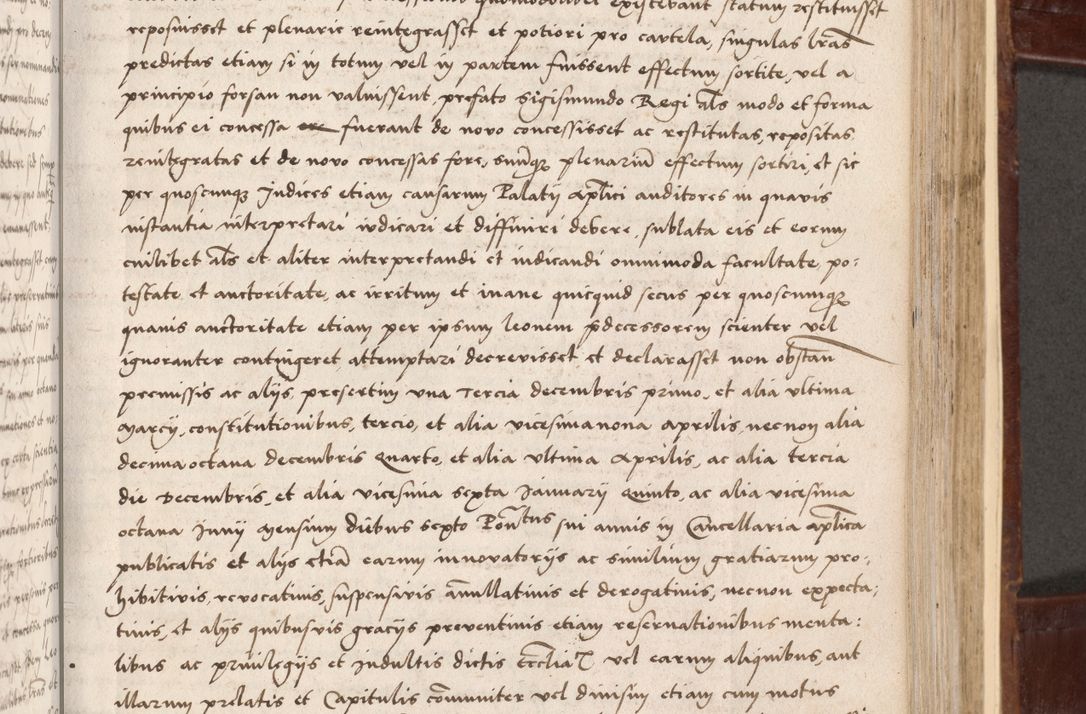 existerant statum restituisset
reposuisset et plenarie reintegrasset et potiori pro cautela, singulas lras
predictas etiam si in totum vel in partem fuissent effectum sortite, vel a
principio forsan non valuissent, prefato Sigismundo Regi als modo et forma
quibus ei concessa fuerant de novo concessisset ac restitutas, repositas
reintegratas et de novo concessas fore, suumq plenariu effectum sortiri, et sic
per quoscumq Judices etiam causarum Palatii aplici auditores in quavis
instantia interpretari iudicari et diffiniri debere, sublata eis et eorum
cuilibet als et aliter interpretandi et iudicandi omnimoda facultate, po:
testate et auctoritate, ac irritum et inane quicquid secus per quoscumq
quavis auctoritate etiam per ipsum leonem predecessorem scienter vel
ignoranter contingeret attemptari decrevisset et declarasset non obstan
premissis ac alijs, presertim una Tercia decembris primo, et alia ultima
Marcij, constitutionibus, tercio, et alia vicesimanona Aprilis, necnon alia
decimaoctava Decembris Quarto, et alia ultima Aprilis, ac alia tercia
die Decembris, et alia vicesima sexta Januarij Quinto, ac alia vicesima
octava Junij mensium diebus sexto Pontus sui annis in Cancellaria aplica
publicatis et alijs etia earum innovatorijs ac similium gratiarum pro:
hibitivis, revocativis, suspensivis, anullativis et derogativis, necnon expecta:
tivis, et alijs quibusvis gracijs preventivis etiam reservationibus menta:
libus ac privilegijs et Indultis dictis Ecclia vel earum aliquibus, aut
illarum prelatis et Capitulis comuniter vel divisim etiam cum motus